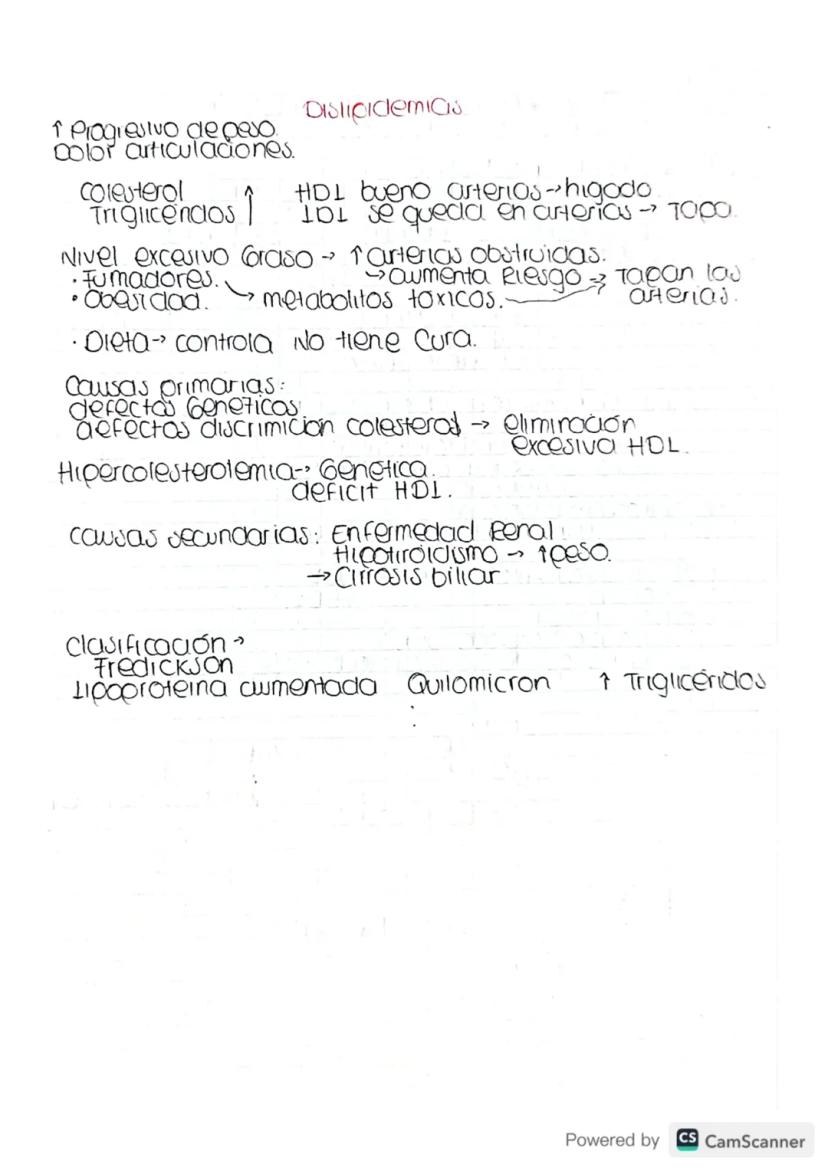 Dislipidemias
↑ Progresivo de peso.
Dolor articulaciones.
Colesterol ↑ HDL bueno arterias → higado
Trigliceridos LDL se queda en arterias → Tapa.
Nivel excesivo Graso → ↑ arterias obstruidas.
· Fumadores. → aumenta Riesgo → Tapan las
· Obesidad. → metabolitos toxicos. arterias.
· Dieta → controla No tiene cura.
Causas primarias:
defectos Geneticos
defectos discrimicion colesterol → eliminación
excesiva HDL.
Hipercolesterolemia → Genetica.
deficit HDL.
causas secundarias: Enfermedad Renal
Hipotiroidismo → ↑ peso.
→ Cirrosis biliar
Clasificación →
Fredickson
Lipoproteina aumentada Quilomicron ↑ Trigliceridos
Powered by CS CamScanner